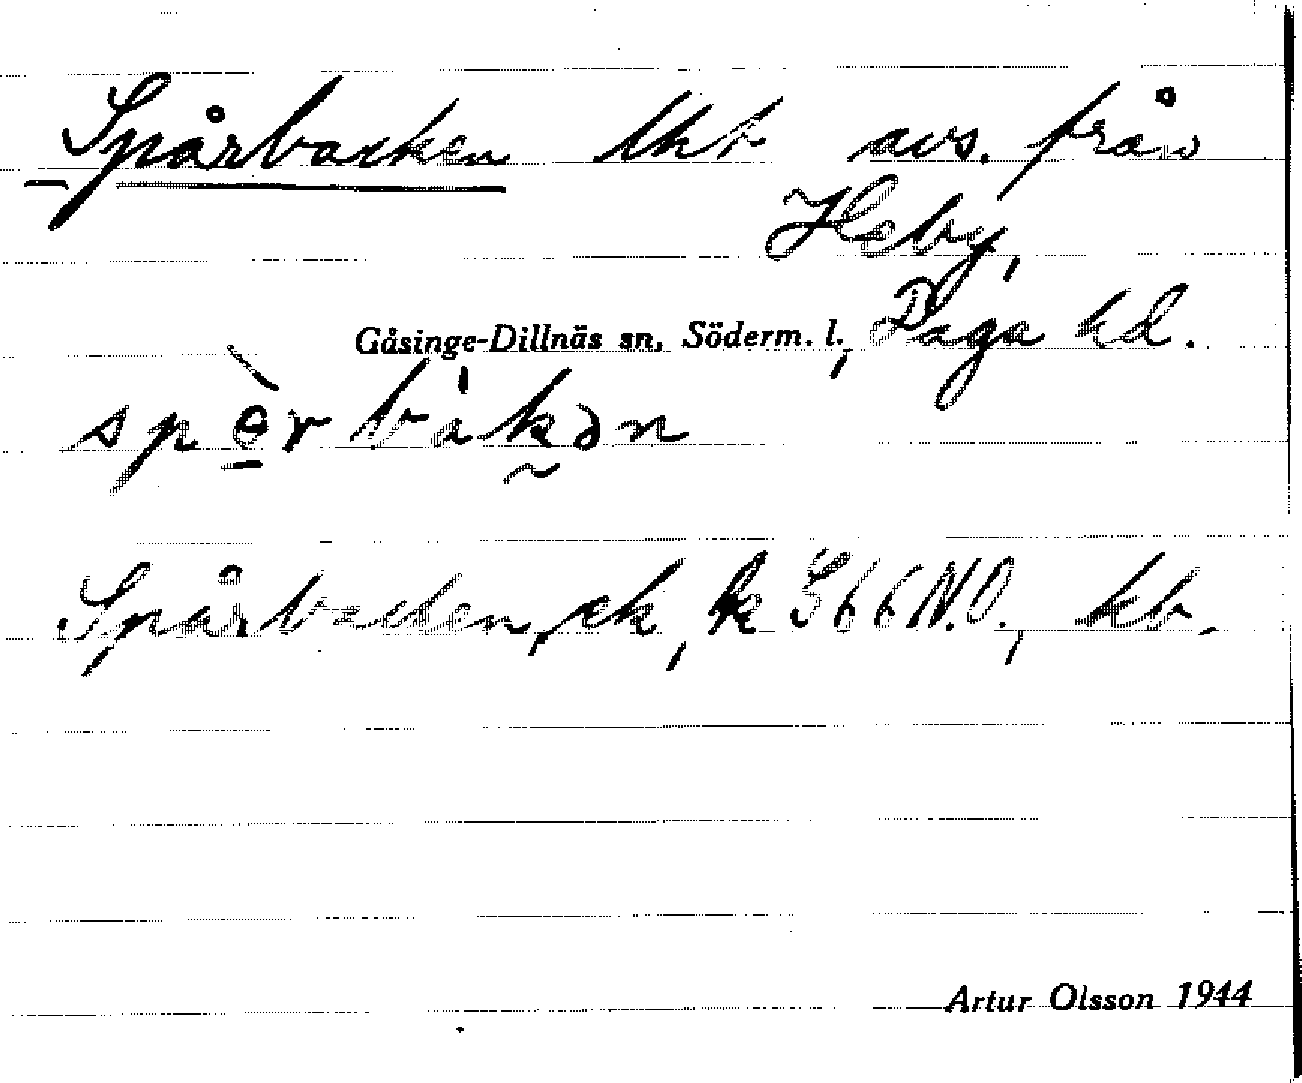 Spårbacken lht avs. från
Heby,
Gåsinge-Dillnäs sn, Söderm. l., Daga hd.
Spårbacken, ek, S66N.O., hb.
Artur Olsson 1944